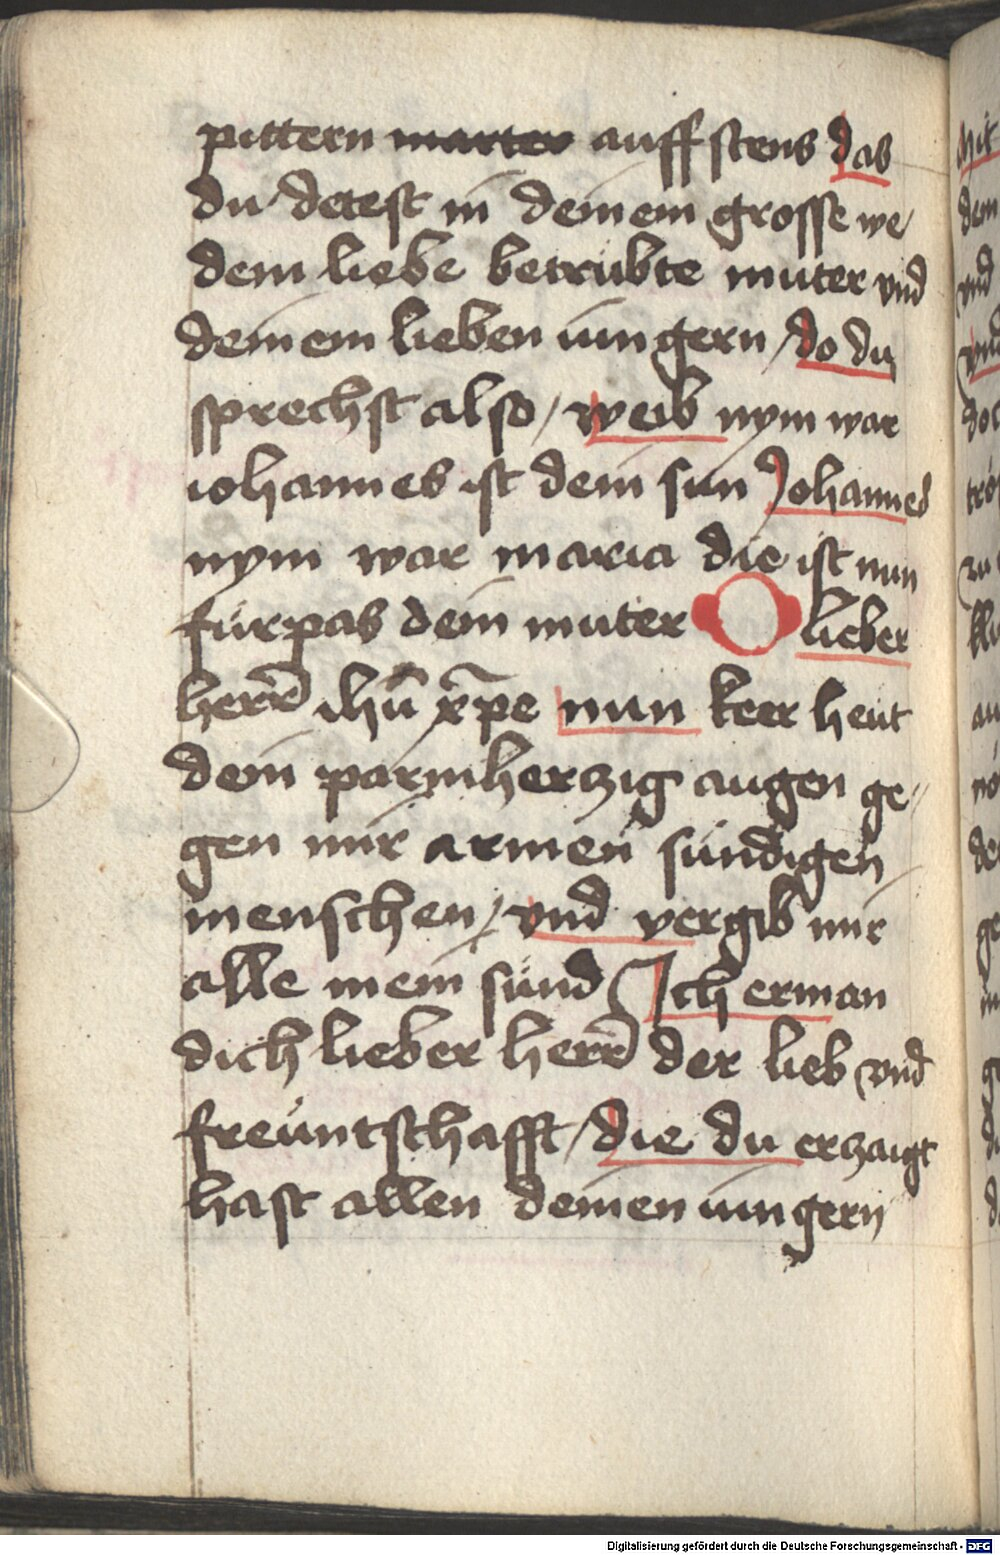 pittern marter auff stens das
du detest in deinem grosse we
dem liebe betrubte muter vnd
deinem lieben iungern / do du
sprechst also / weib nym war
iohannes ist dein sun Johannes
nym war maria die ist nun
fürpas dein muter O lieber
herr̄ ihū xp̄e nun keer heut
dein parmherczig augen ge⸗
gen mir armen sündigen
menschen / vnd vergib mir
alle mein sünd Ich erman
dich lieber herr̄ der lieb vnd
freuntschafft / die du erzaigt
hast allen deinen iungern
mit
dem
vnd
Digitalisierung gefördert durch die Deutsche Forschungsgemeinschaft - DFG